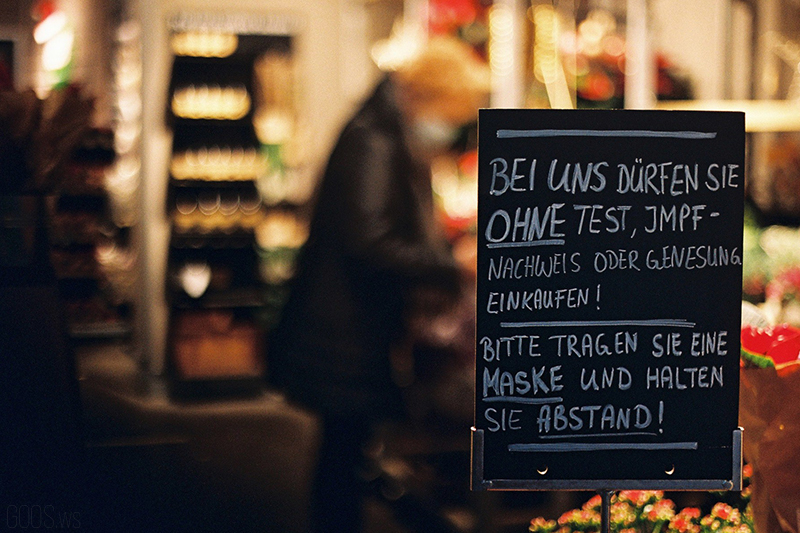 BEI UNS DÜRFEN SIE
OHNE TEST, IMPF-
NACHWEIS ODER GENESUNG
EINKAUFEN!
BITTE TRAGEN SIE EINE
MASKE UND HALTEN
SIE ABSTAND!
GOOS.ws